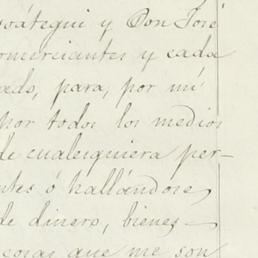 oátegui y Don José
omerciantes y cada
ado, para, por mí
hor todos los medios
de cualesquiera per-
ntes ó hallándose
de dinero, bienes
cosas que me son